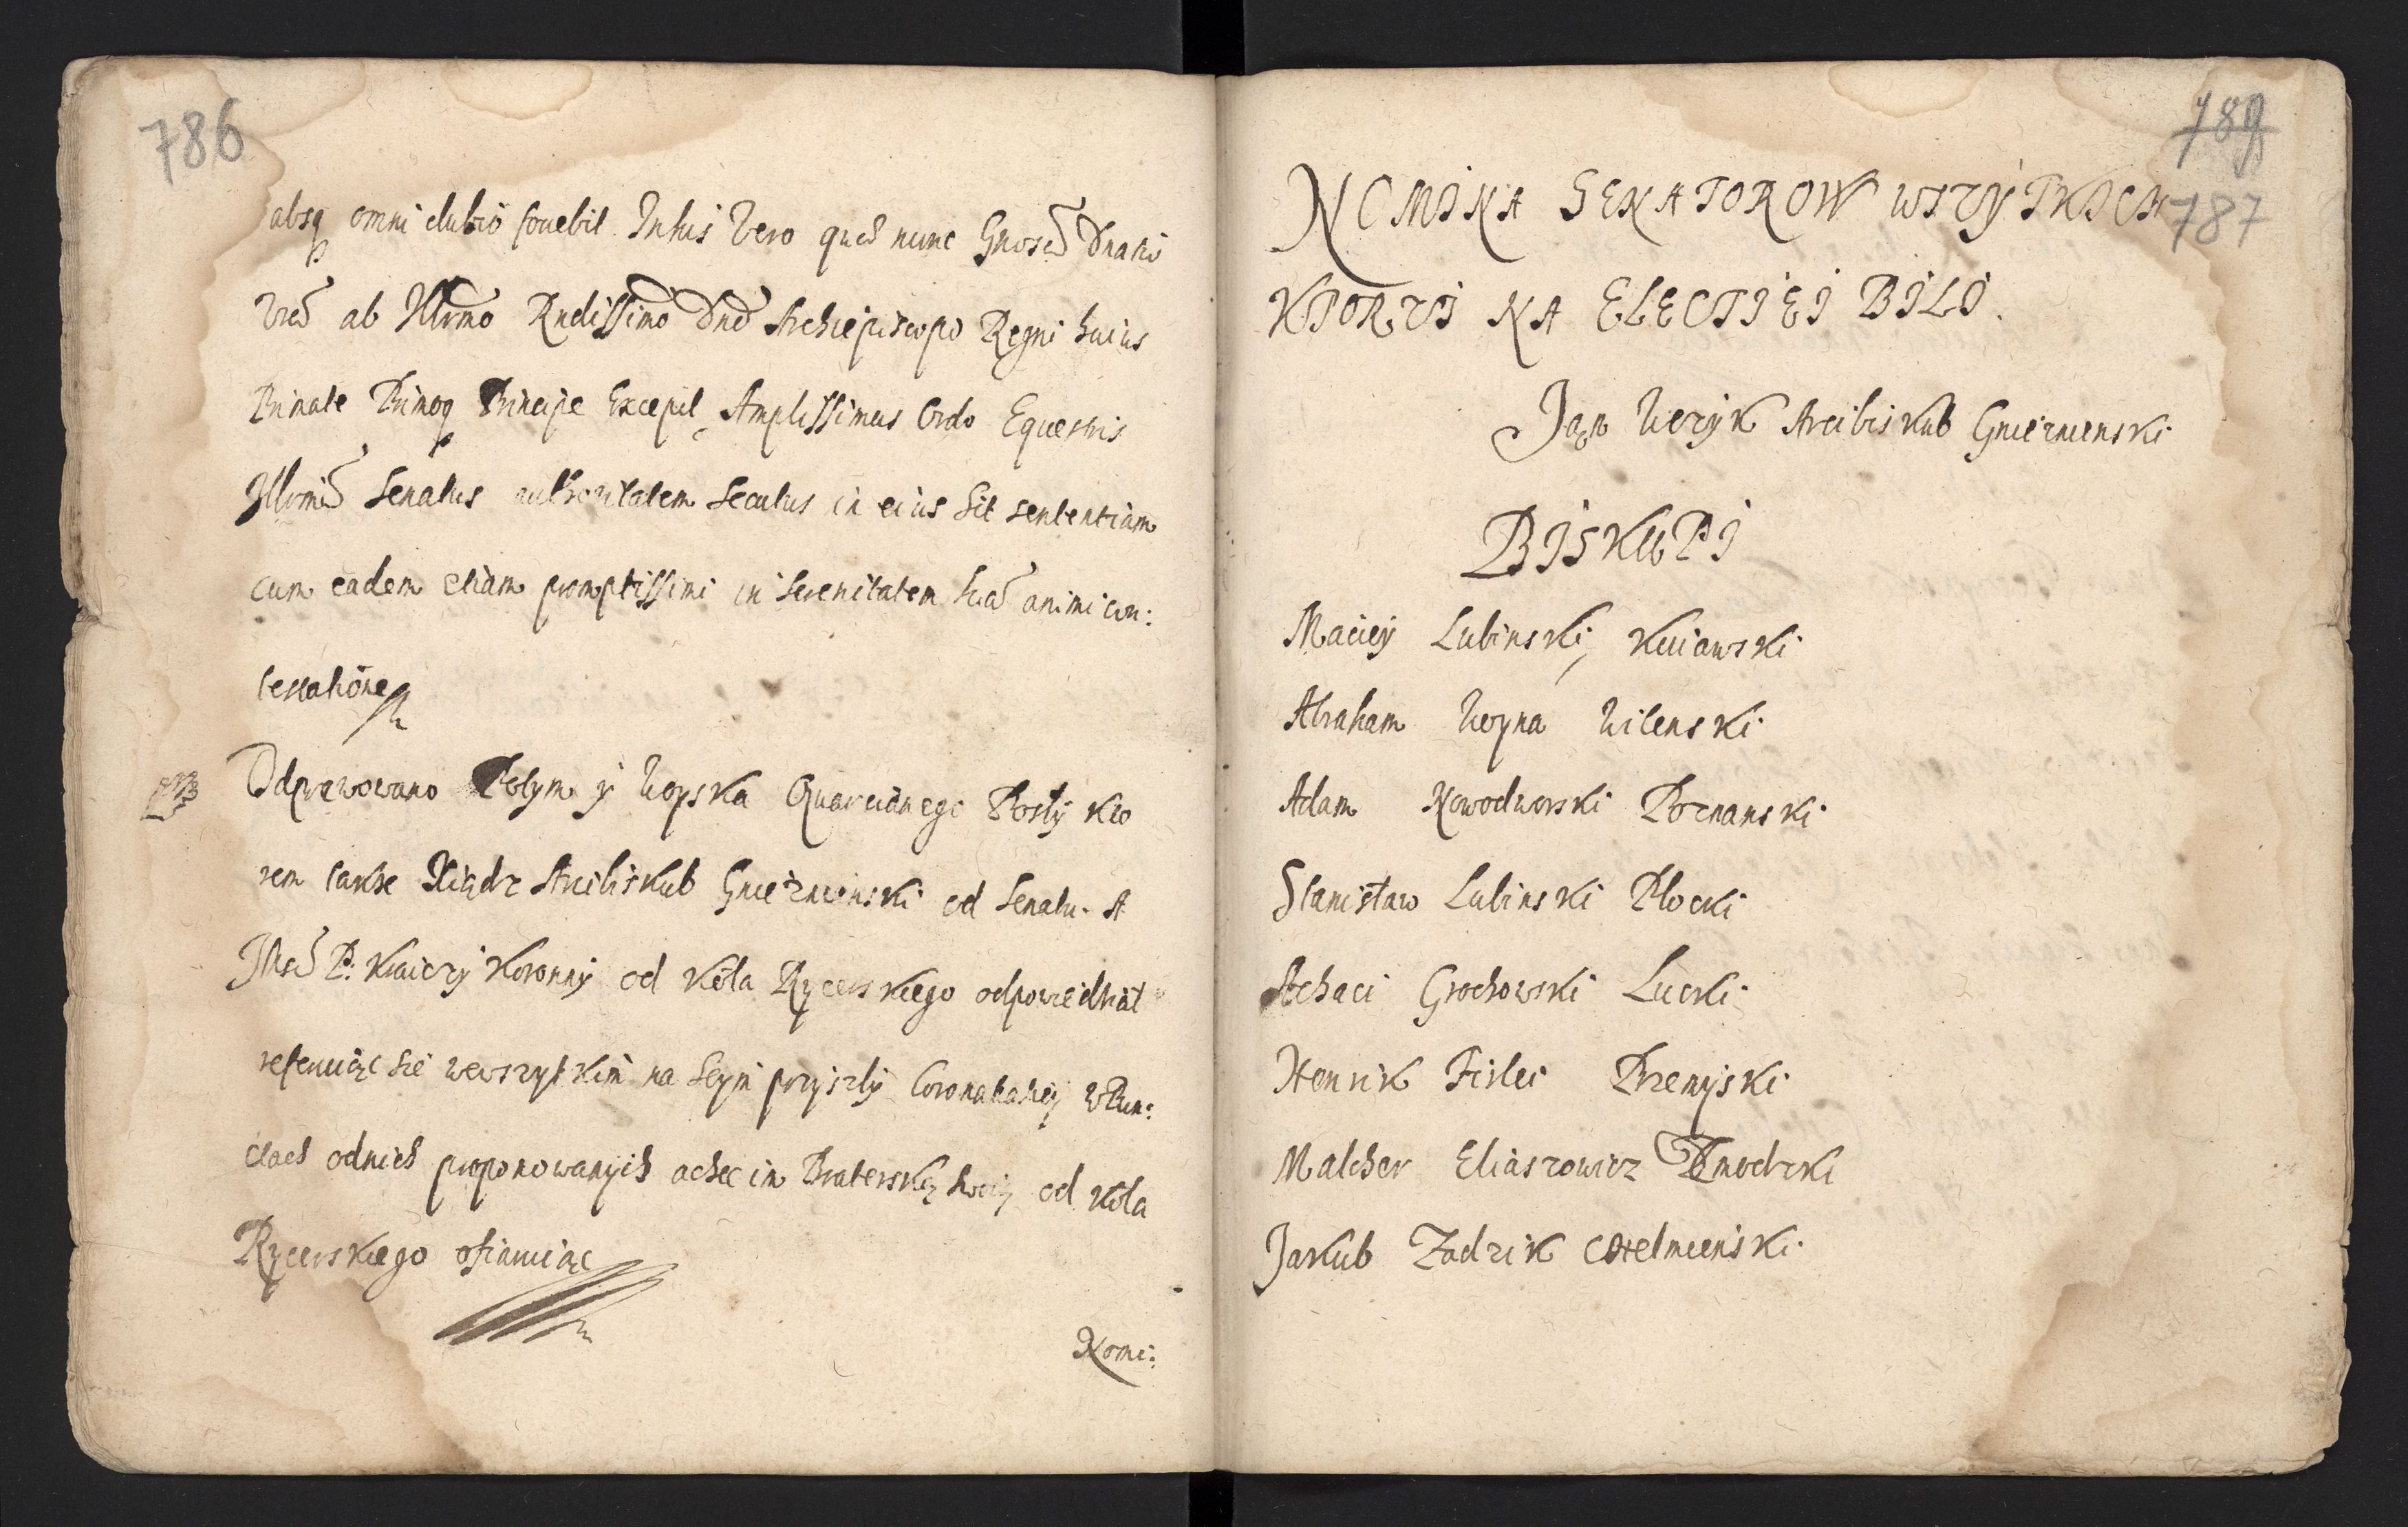 786
absq omni dubio fouebit. Intus Vero quae nunc Gnosae Dnatio
Vrae ab Illrmo Rndissimo Dno Archiepiscopo Regni huius
Primate Primoq Principe Excepit, Amplissimus Ordo Equestris
Illrmi Senatus authoritatem secutus in eius sit sententiam
cum eadem etiam promptissimi in Serenitatem suae animi con:
testatione
Odprawowano Potym y Woyska Quarcianego Posły kto
rem takze Xiądz Arcibiskub Gnieznienski od Senatu. A
JMsc P. Kraiczy Koronny od Koła Rycerskiego odpowiedział
referuiąc sie wewszytkim na Seym przyszły Coronatiey w Pun:
ctach odnich proponowanych a chęc im Braterską swoią od Koła
Rycerskiego ofiaruiąc
Nomi:
789
787
NOMINA SENATOROW WSZYTKICH
KTORZI NA ELECTIEI BILI.
Jan Węzyk Arcibiskub Gnieznienski
BISKUPI
Maciey Lubinski, Kuiawski
Abraham Woyna Wilenski
Adam Nowodworski Poznanski
Stanisław Lubinski Płocki
Achaci Grochowski Lucki
Henrik Firlei Przemyski
Malcher Eliaszowicz Zmodzki
Jakub Zadzik CHelmienski